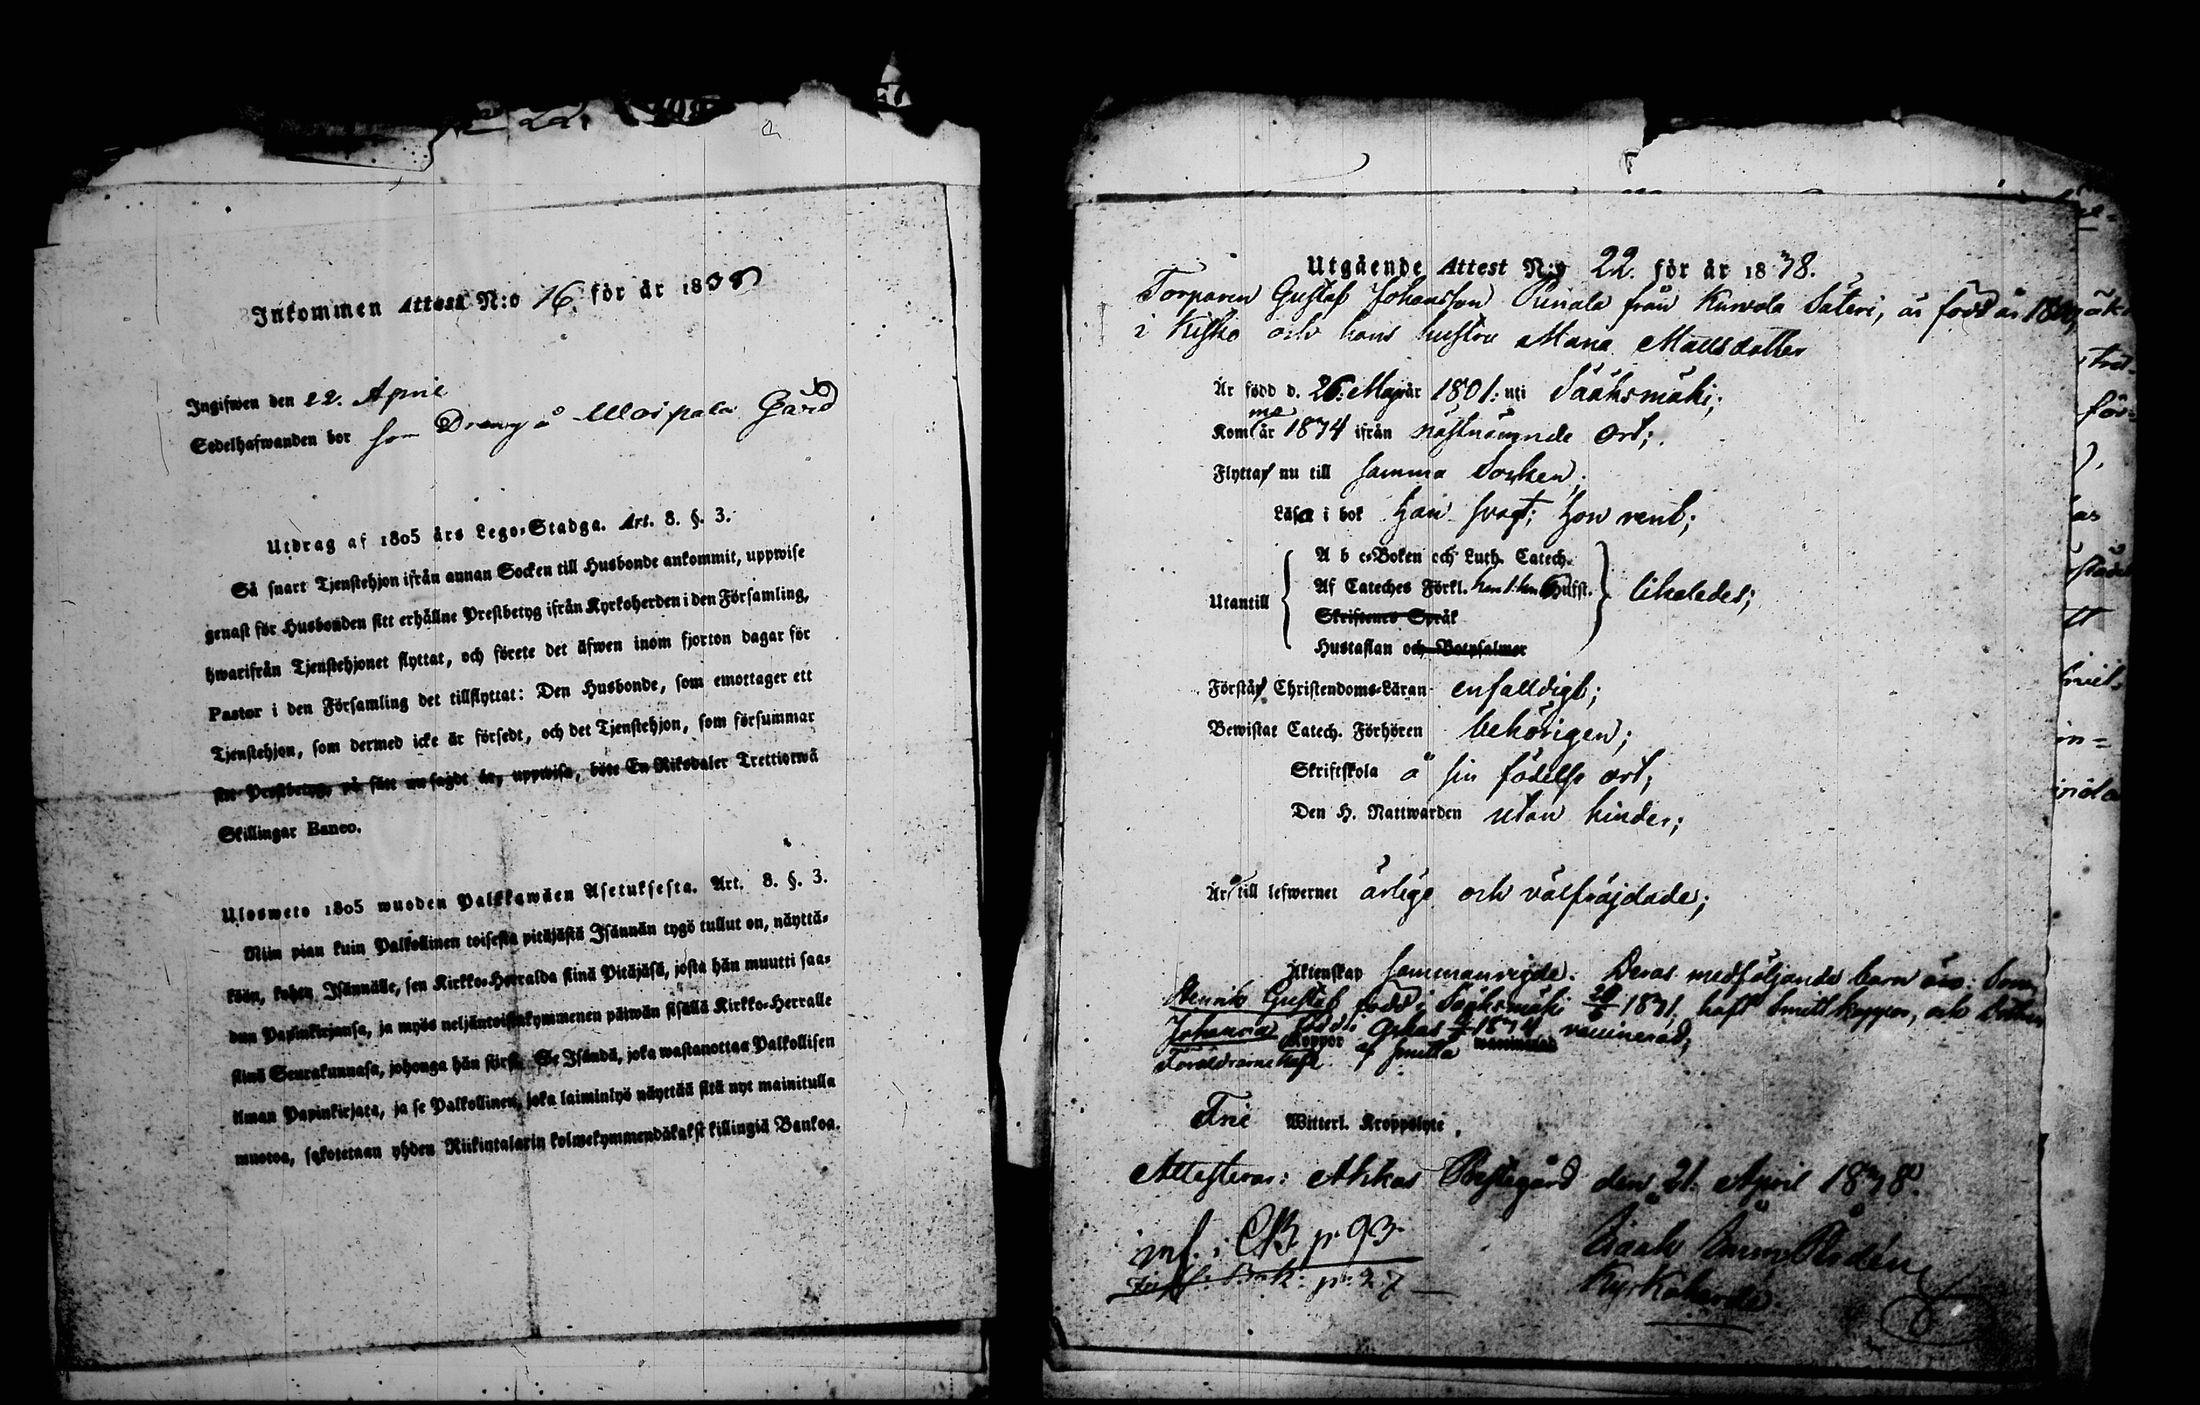 Inkommen Attest N:o 16. för år 1838
Ingifwen den 22. April
Sedelhafwanden bor som Dräng å Woipala Gård
Utdrag af 1805 års Lego-Stadga. Art. 8. §. 3.
Så snart Tjenstehjon ifrån annan Socken till Husbonde ankommit, uppwise
genast för Husbonden sitt erhållne Prestbetyg ifrån Kyrkoherden i den Församling,
hwarifrån Tjenstehjonet flyttat, och förete det äfwen inom fjorton dagar för
Pastor i den Församling det tillflyttat: Den Husbonde, som emottager ett
Tjenstehjon, som dermed icke är försedt, och det Tjenstehjon, som försummar
sitt Prestbetyg, på sätt nu sagdt är, uppwisa, böte En Riksdaler Trettiotwå
Skillingar Banco.
Ulosweto 1805 wuoden Palkkawäen Asetuksesta. Art. 8. §. 3.
Niin pian kuin Palkollinen toisesta pitäjästä Isännän tygö tullut on, näyttä-
köön, kohta Isännälle, sen Kirkko-Herralda siinä Pitäjäsä, josta hän muutti saa-
dun Papinkirjansa, ja myös neljäntoistakymmenen päiwän sisällä Kirkko-Herralle
siinä Seurakunnasa, johonga hän siirsi. Se Isändä, joka wastanottaa Palkollisen
ilman Papinkirjata, ja se Palkollinen, joka laiminlyö näyttää sitä nyt mainitulla
muotoa, sakotetaan yhden Riikintalarin kolmekymmendäkaksi killingiä Bankoa.
Utgående Attest N:o 22. för år 1838.
Torparen Gustaf Johansson Punala från Kurvola Säteri, är född år
i Kisko och hans hustru Maria Mattsdotter
Är född d. 26: Maj år 1801: uti Sääksmäki;
Komme år 1834 ifrån nästnämnde Ort;
Flytta nu till samma Socken.
Läsa i bok Han svagt; Hon rent;
Utantill
A b c-Boken och Luth. Catech.
Af Cateches Förkl. Hustfl.
Skriftenes Språk
Hustaflan och Botpsalmer
likaledes;
Förstå Christendoms-Läran enfalldigt;
Bewistat Catech. Förhören behörigen;
Skriftskola å sin födelse ort;
Den H. Nattwarden utan hinder;
Äro till lefwernet ärlige och välfräjdade;
Äktenskap sammanvigde. Deras medföljande barn äro: Son
Henrik Gustaf född i Sääksmäki 1831, haft Smittkoppor, och Dotter
Johanna född i Akkas 1834 vaccinerad;
Föräldrarne haft koppor af smitta
Frie Witterl. Kroppslyte,
Attesterar: Akkas Prestegård den 21. April 1838.
inf. i CB p 93
p: 27
Kyrkoherde.